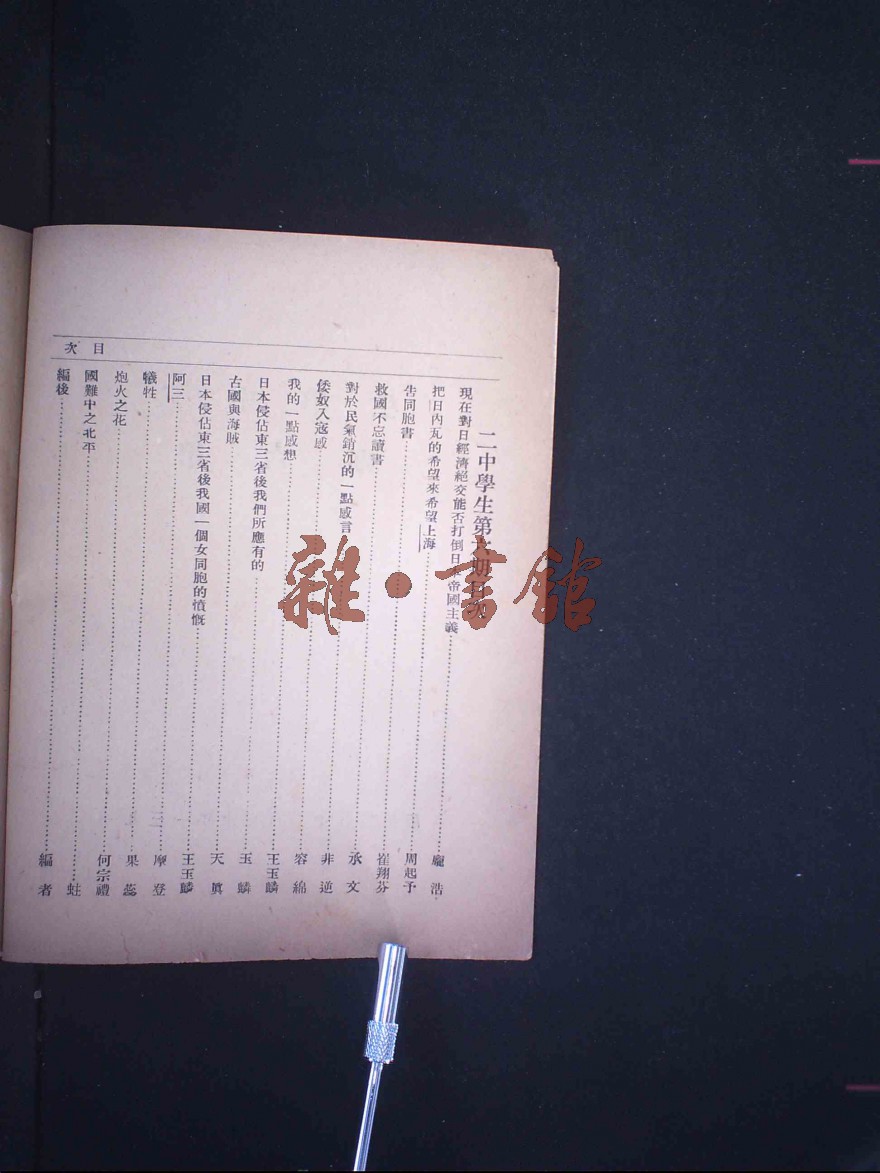 目次
二中學生第六期目次
現在對日經濟絕交能否打倒日本帝國主義……龐浩
把日內瓦的希望來希望上海……周起予
告同胞書……崔翔芬
救國不忘讀書……承文
對於民氣銷沉的一點感言……非逆
倭奴入寇感……容綿
我的一點感想……王玉麟
日本侵佔東三省後我們所應有的……玉麟
古國與海賊……天眞
日本侵佔東三省後我國一個女同胞的憤慨……王玉麟
阿三……摩登
犧牲……果蕊
炮火之花……何宗禮
國難中之北平……蛀
編後……編者
雜·書館